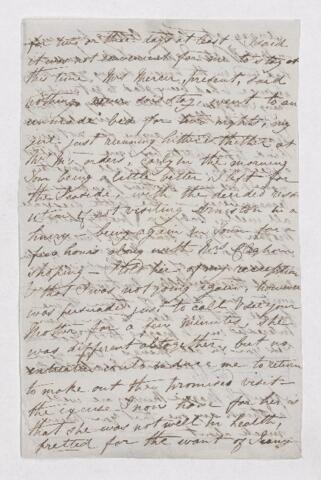 for two or three days at least said
it was not convenient for me to stay at
this time Mrs Mercer, present, said
nothing never does stay, went to an
bed for two nights, my
girl just running hither & thither at
Mr M's orders. Early in the morning
I'm being a little better I left for
the Seaside, with the decided reso
lution of not visiting Kingston in a
hurry — being again in town for a
few hours along with Mrs
shoping — I told her of my reception
& that I was not going again, however
was persuaded just to call & see your
Mother, for a few minutes, She
was different altogether, but no
entreaties could induce me to return
to make out the promised visit
the excuse I now have for her is
that she was not well in health,
fretted for the want of